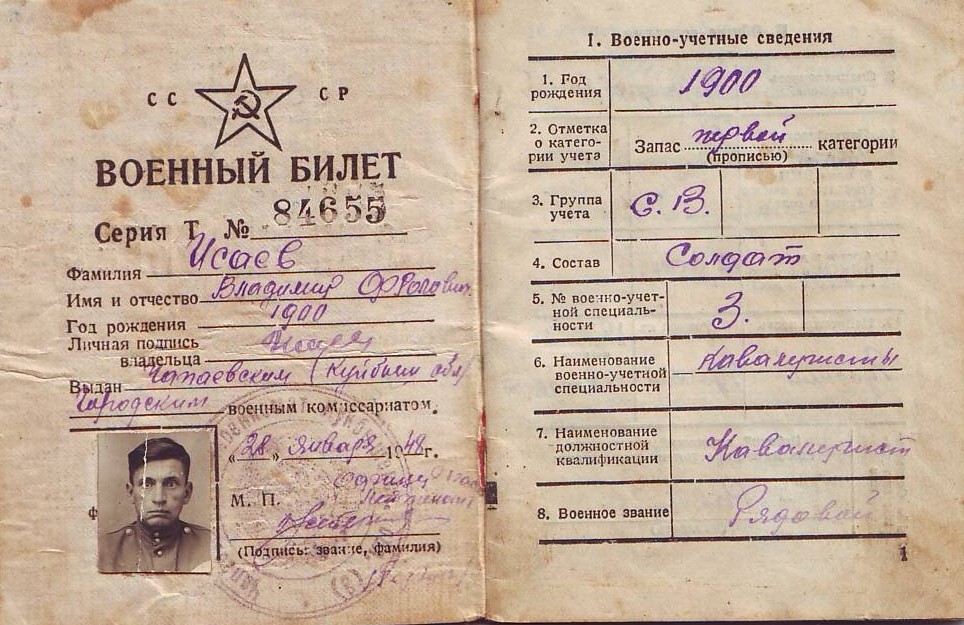 СС СР
ВОЕННЫЙ БИЛЕТ
Серия Т № 84655
Фамилия Исаев
Имя и отчество Владимир
Год рождения 1900
Личная подпись
владельца
Выдан Чапаевским (Куйбыш обл)
Городским военным комиссариатом.
"28" января 1948 г.
М. П.
(Подпись: звание, фамилия)
I. Военно-учетные сведения
1. Год
рождения 1900
2. Отметка
о катего-
рии учета Запас первой категории
(прописью)
3. Группа
учета С. В.
4. Состав Солдат
5. № военно-учет-
ной специаль-
ности 3.
6. Наименование
военно-учетной
специальности Кавалеристы
7. Наименование
должностной
квалификации Кавалерист
8. Военное звание Рядовой
1